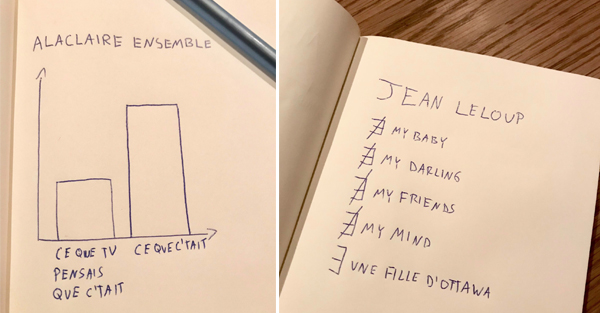 ALACLAIRE ENSEMBLE
CE QUE TU
PENSAIS
QUE C'TAIT
CE QUE C'TAIT
JEAN LELOUP
MY BABY
MY DARLING
MY FRIENDS
MY MIND
UNE FILLE D'OTTAWA